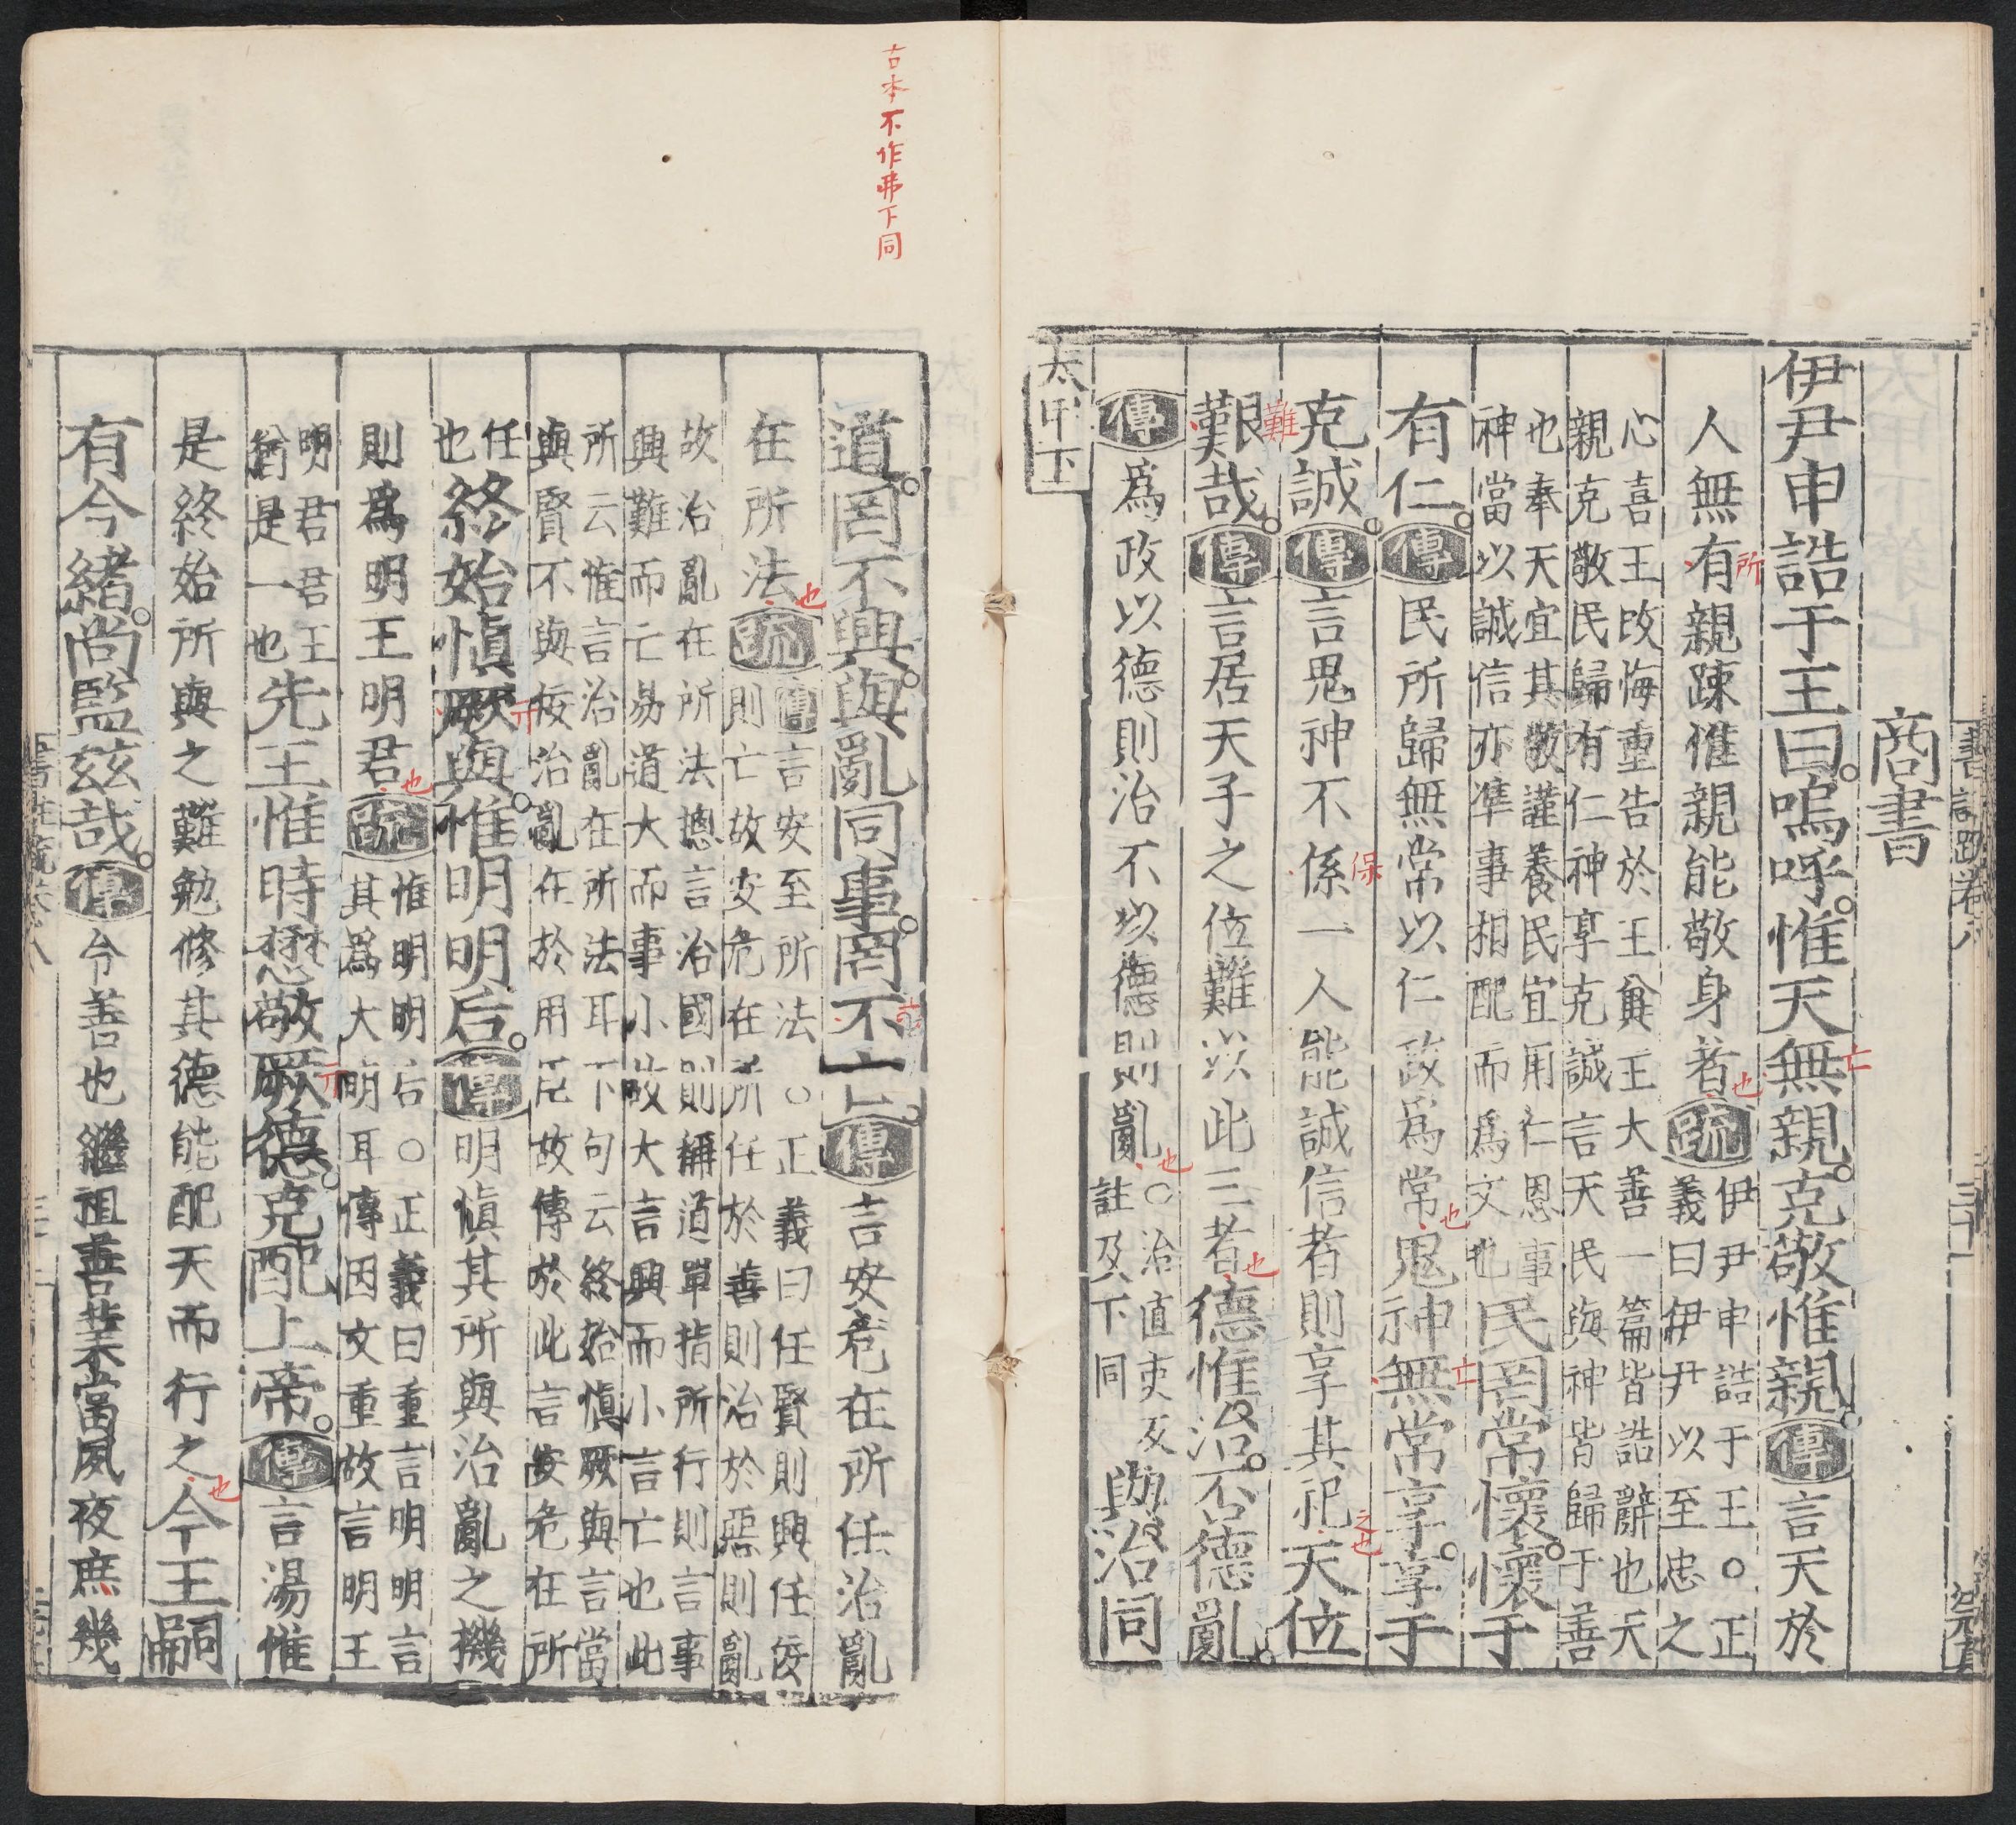 書註疏卷八 三十
商書
伊尹申誥于王曰嗚呼惟天無親克敬惟親傳言天於
亡
人無有親踈惟親能敬身者疏
所
也
伊尹申誥于王○正
義曰伊尹以至忠之
心喜王改悔重告於王冀王大善一篇皆誥辭也天
親克敬民歸有仁神享克誠言天民與神皆歸于善
也奉天宜其敬謹養民宜用仁恩事
神當以誠信亦準事相配而爲文也
民罔常懷懷于
有仁傳民所歸無常以仁政爲常鬼神無常享享于
也
亡
克誠傳言鬼神不係一人能誠信者則享其祀天位
保
之也
艱哉傳言居天子之位難以此三者德惟治否德亂
難
也
傳爲政以德則治不以德則亂
也
○治直吏反
註及下同
與治同
太甲下
古本不作弗下同
道罔不興與亂同事罔不亡傳言安危在所任治亂
在所法疏
也
傳言安至所法○正義曰任賢則興任佞
則亡故安危在所任於善則治於惡則亂
故治亂在所法法揔言治國則稱道單指所行則言事
興難而亡易道大而事小故大言興而小言亡也此
所云惟言治亂在所法耳下句云終始愼厥與言當
與賢不與佞治亂在於用臣故傳於此言安危在所
任
也
終始愼厥與惟明明后傳明愼其所與治亂之機
亓
則爲明王明君疏
也
惟明明后○正義曰重言明明言
其爲大明耳傳因文重故言明王
明君君王
猶是一也
先王惟時懋敬厥德克配上帝傳言湯惟
亓
是終始所與之難勉修其德能配天而行之今王嗣
也
有令緒尚監茲哉傳令善也繼祖善業當夙夜庶幾